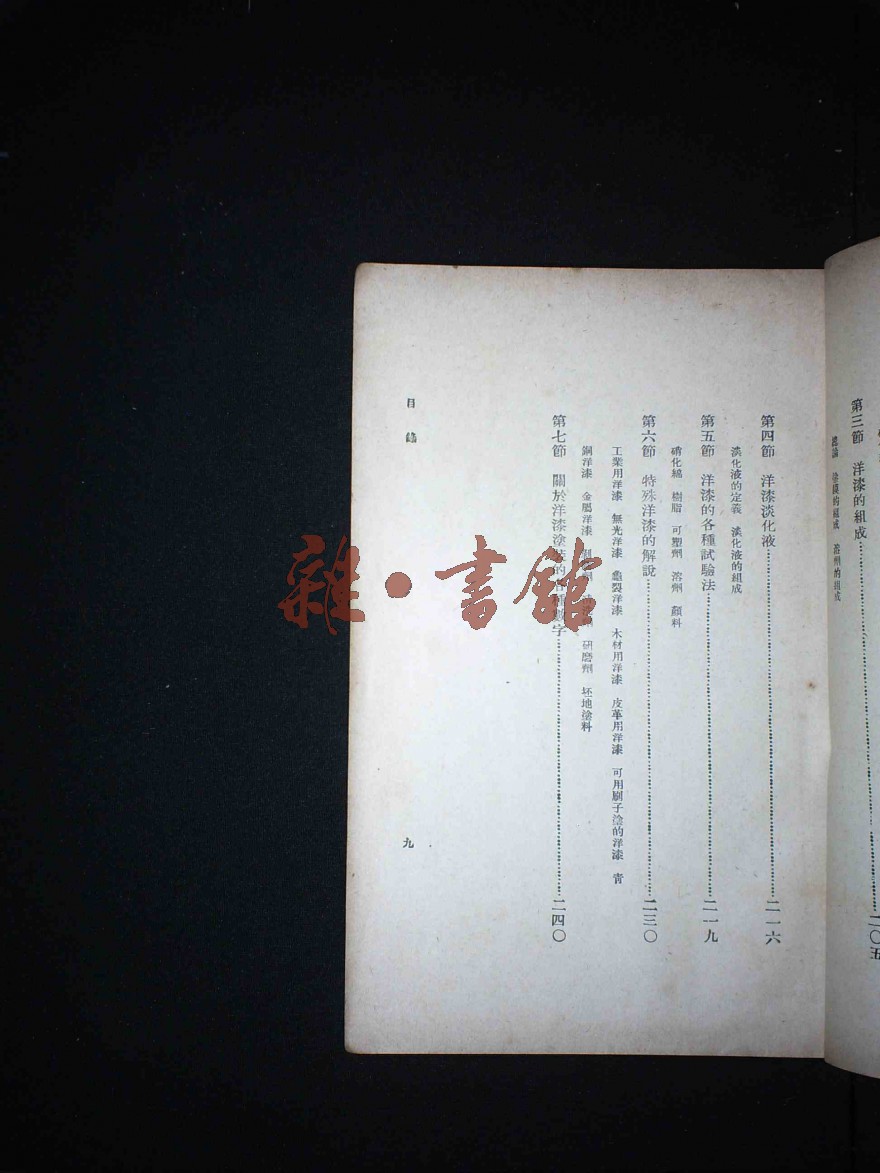 第三節　洋漆的組成……二〇五
總論　塗膜的組成　溶劑的組成
第四節　洋漆淡化液……二一六
淡化液的定義　淡化液的組成
第五節　洋漆的各種試驗法……二一九
硝化綿　樹脂　可塑劑　溶劑　顏料
第六節　特殊洋漆的解說……二三〇
工業用洋漆　無光洋漆　龜裂洋漆　木材用洋漆　皮革用洋漆　可用刷子塗的洋漆　青
銅洋漆　金屬洋漆　研磨劑　坯地塗料
第七節　關於洋漆塗裝的各種數字……二四〇
目錄
九
雜・書館